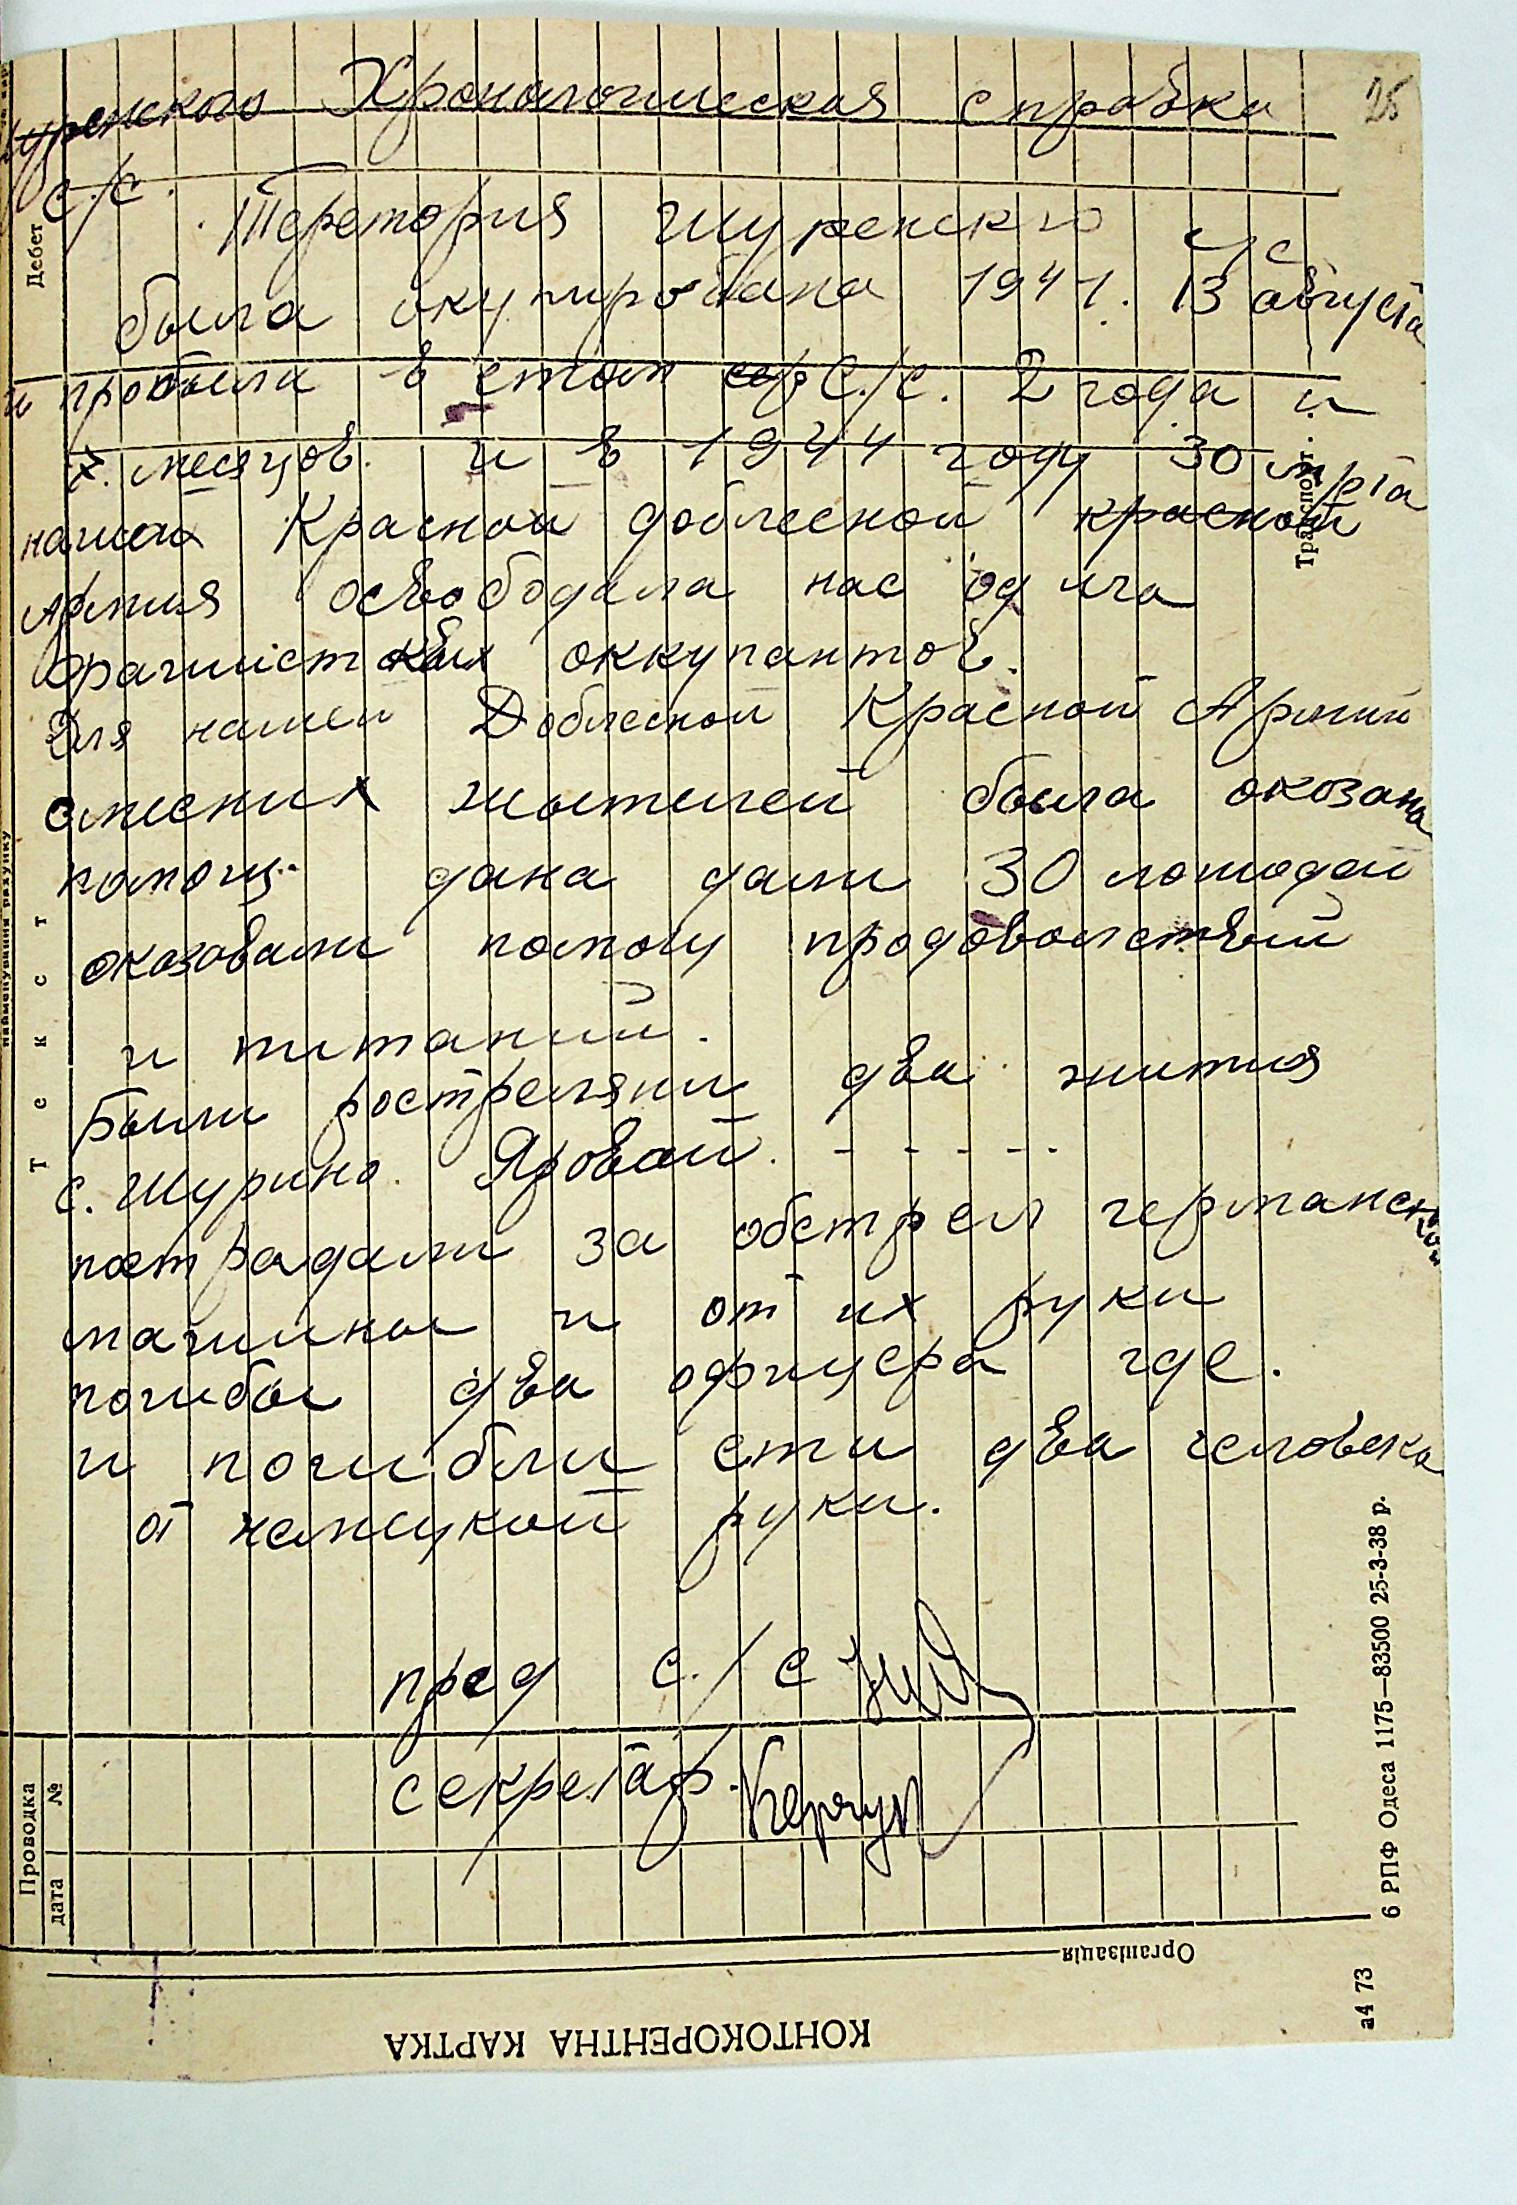 25
Хронологическая справка
Шуренского
с/с.
Теретория Шуренского с/с
была окупирована 1941. 13 августа
и пробыли в етом с/с. 2 года и
7. месяцов. и в 1944 году 30 мрта
наших Красной доблесной красной
Армия освободила нас од ига
фрашистских оккупантов.
Для нашей Доблесной Красной Армии
сместних жытилей была оказана
помощ. дана дали 30 лошодей
оказовали помощ продоволствий
и питаний.
Были ростреляни два житиля
с. Шурино. Яровой. - - - - -
пострадали за обстрел германской
машины и от их руки
погибы два офицера где.
и погибли ети два человека
от немецкой руки.
пред с./с
секретар.
Дебет
Транспорт
найменування рахунку
Текст
Проводка
дата №
Організація
КОНТОКОРЕНТНА КАРТКА
6 РПФ Одеса 1175—83500 25-3-38 р.
а4 73